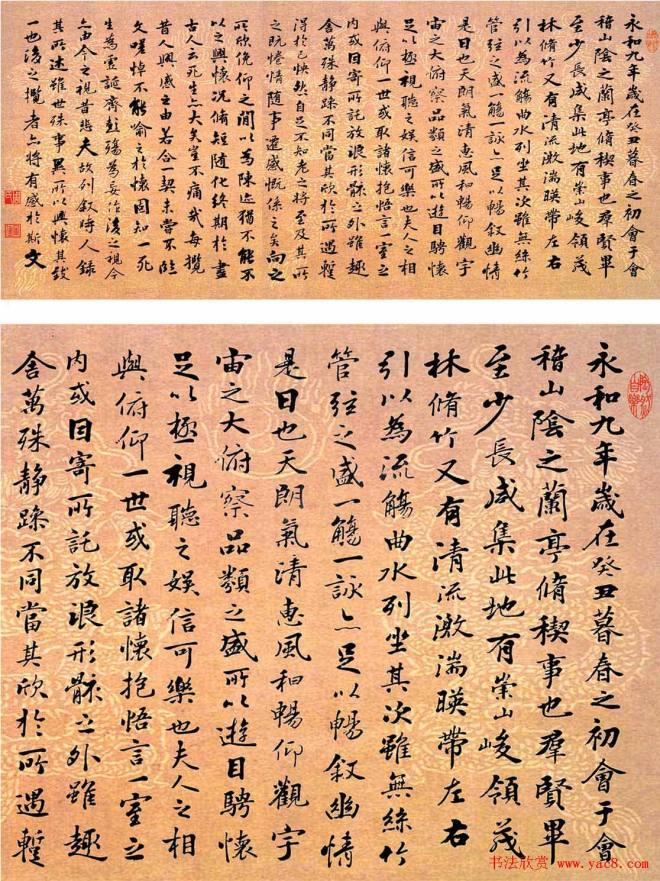 永和九年歲在癸丑暮春之初會于會
稽山陰之蘭亭脩稧事也羣賢畢
至少長咸集此地有崇山峻領茂
林脩竹又有清流激湍暎帶左右
引以為流觴曲水列坐其次雖無絲竹
管弦之盛一觴一詠亦足以暢叙幽情
是日也天朗氣清惠風和暢仰觀宇
宙之大俯察品類之盛所以遊目騁懷
足以極視聽之娛信可樂也夫人之相
與俯仰一世或取諸懷抱悟言一室之
內或因寄所託放浪形骸之外雖趣
舍萬殊靜躁不同當其欣於所遇暫
得於己怏然自足不知老之將至及其所
之既惓情隨事遷感慨係之矣向之
所欣俛仰之間以為陳迹猶不能不
以之興懷況脩短隨化終期於盡
古人云死生亦大矣豈不痛哉每攬
昔人興感之由若合一契未嘗不臨
文嗟悼不能喻之於懷固知一死
生為虛誕齊彭殤為妄作後之視今
亦由今之視昔悲夫故列叙時人錄
其所述雖世殊事異所以興懷其致
一也後之攬者亦將有感於斯文
永和九年歲在癸丑暮春之初會于會
稽山陰之蘭亭脩稧事也羣賢畢
至少長咸集此地有崇山峻領茂
林脩竹又有清流激湍暎帶左右
引以為流觴曲水列坐其次雖無絲竹
管弦之盛一觴一詠亦足以暢叙幽情
是日也天朗氣清惠風和暢仰觀宇
宙之大俯察品類之盛所以遊目騁懷
足以極視聽之娛信可樂也夫人之相
與俯仰一世或取諸懷抱悟言一室之
內或因寄所託放浪形骸之外雖趣
舍萬殊靜躁不同當其欣於所遇暫
书法欣赏 www.yac8.com